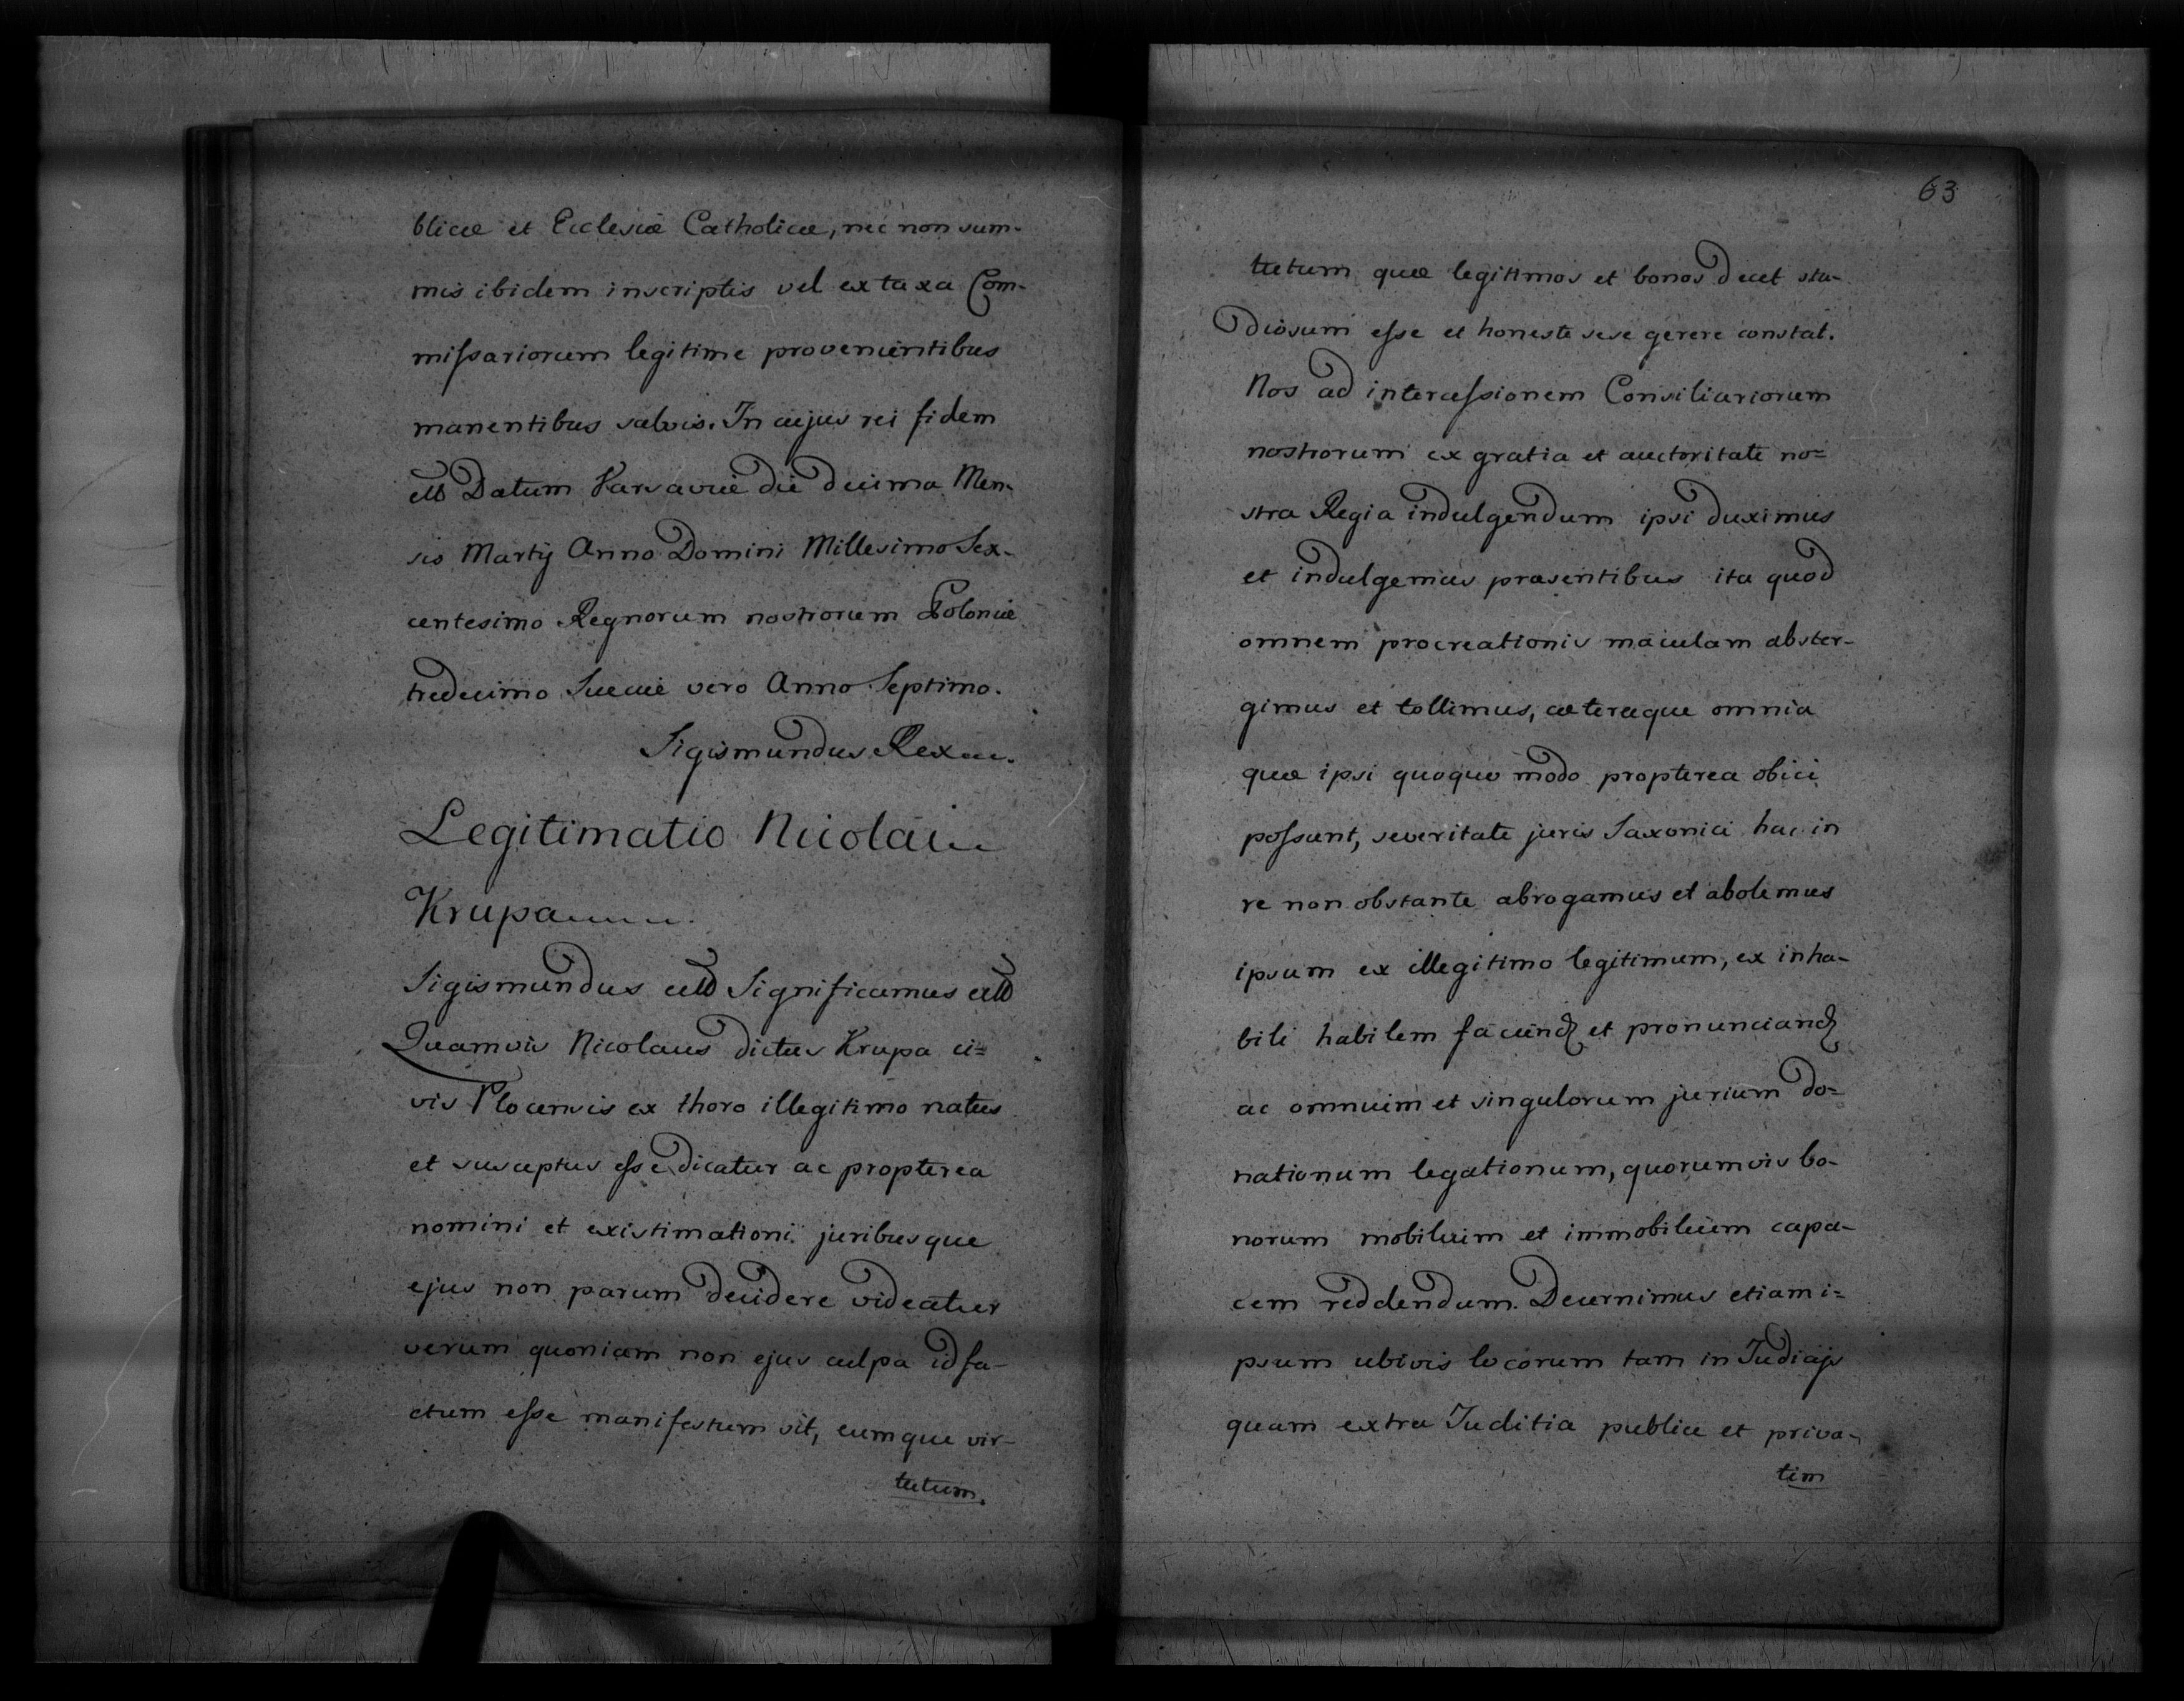 blicæ et Ecclesiæ Catholicæ, nec non sum-
mis ibidem inscriptis vel ex taxa Com-
missariorum legitime provenientibus
manentibus salvis. In cujus rei fidem
etc Datum Varsaviæ die decima Men-
sis Martij Anno Domini Millesimo Sex-
centesimo Regnorum nostrorum Poloniæ
tredecimo Sueciæ vero Anno Septimo.
Sigismundus Rex
Legitimatio Nicolai
Krupa
Sigismundus etc Significamus etc
Quamvis Nicolaus dictus Krupa ci=
vis Plocensis ex thoro illegitimo natus
et susceptus esse dicatur ac propterea
nomini et existimationi juribusque
ejus non parum decidere videatur
verum quoniam non ejus culpa id fa-
ctum esse manifestum sit, eumque vir-
tutum.
63
tutum quæ legitimos et bonos decet stu-
diosum esse et honeste sese gerere constat.
Nos ad intercessionem Consiliariorum
nostrorum ex gratia et auctoritate no=
stra Regia indulgendum ipsi duximus
et indulgemus præsentibus ita quod
omnem procreationis maculam abster-
gimus et tollimus, cæteraque omnia
quæ ipsi quoquo modo propterea obici
possunt, severitate juris Saxonici hac in
re non obstante abrogamus et abolemus
ipsum ex illegitimo legitimum, ex inha-
bili habilem faciend et pronunciand
ac omnium et singulorum jurium do=
nationum legationum, quorumvis bo-
norum mobilium et immobilium capa-
cem reddendum. Decernimus etiam i=
psum ubivis locorum tam in Judicijs
quam extra Juditia publice et priva-
tim